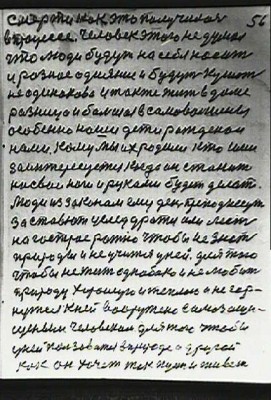 смерти как это получилося 56
в процессе. Человек этого не думал
что люди будут на себя носить
и разное одеяние и будут кушать
не одинаково и также жить в доме
разница и большая в самовольных
особенно наши дети рожденои
нами. Кому мы их родили кто ими
заинтересуется когда он станит
на свои ноги и руками будит делать.
Люди из законам ему ден преподнесут
заставют целед драти али лезт
на гострое ражно чтобы не знать
природи и не учится у ней. для того
чтобы не жит однобоко и не любит
природу хорошую и теплою а не
к ней вооружено самозащи
Человеком для того чтобы
ней ползоватся в природе а другой
как он хочет так пуст и живет